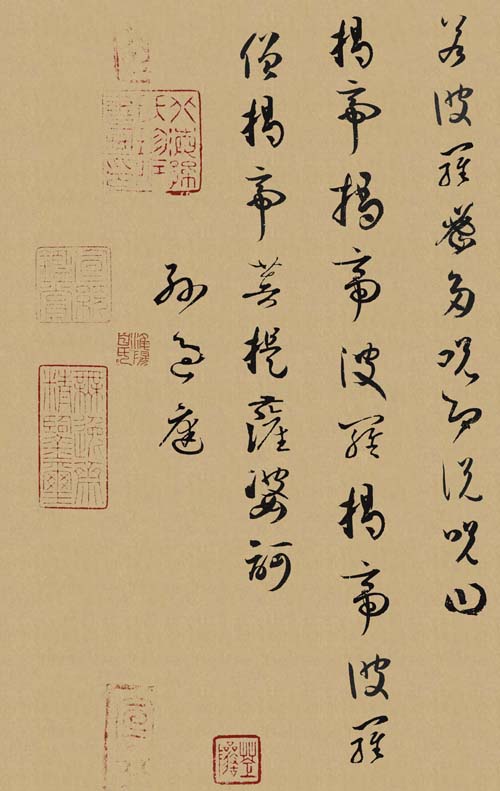 若波羅蜜多咒即說咒曰
揭帝揭帝波羅揭帝波羅
僧揭帝菩提薩婆訶
孫過庭